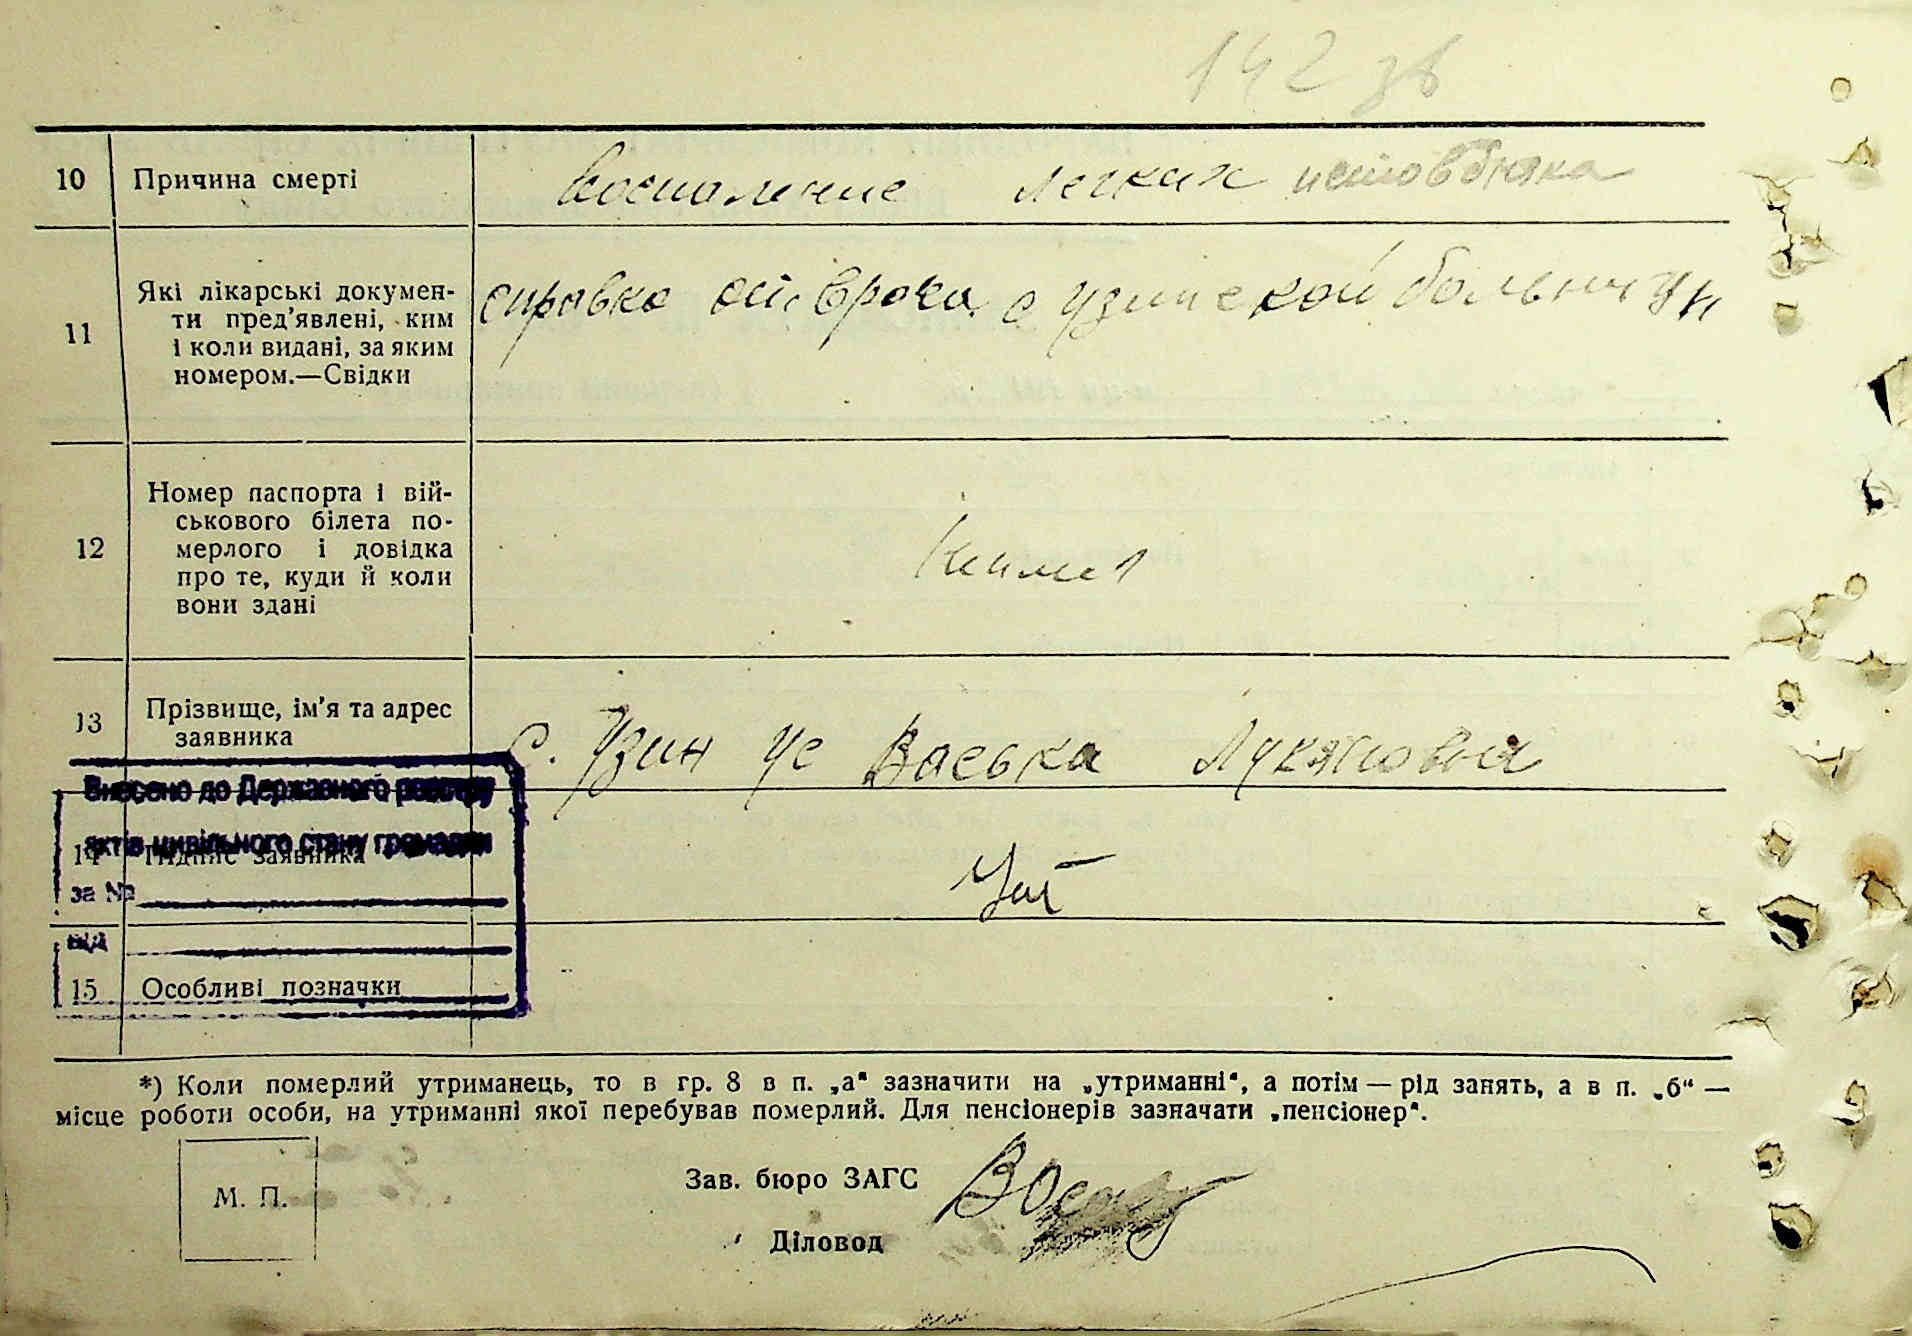 142 зв
10 Причина смерті Воспаление легких
11 Які лікарські докумен-
ти пред'явлені, ким
і коли видані, за яким
номером.—Свідки
справка от врача с узинской больницы
12 Номер паспорта і вій-
ськового білета по-
мерлого і довідка
про те, куди й коли
вони здані
13 Прізвище, ім'я та адрес
заявника
с. Узин Ус Васька Лукяновна
Внесено до Державного реєстру
актів цивільного стану громадян
14 Підпис заявника Ус
за №
від
15 Особливі позначки
*) Коли померлий утриманець, то в гр. 8 в п. „а“ зазначити на „утриманні“, а потім — рід занять, а в п. „б“ —
місце роботи особи, на утриманні якої перебував померлий. Для пенсіонерів зазначати „пенсіонер“.
М. П.
Зав. бюро ЗАГС
Діловод